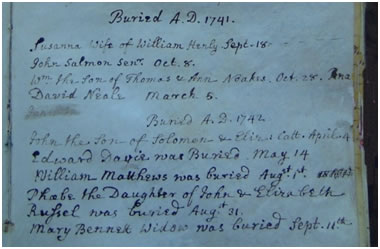 Buried A.D. 1741.
Susanna Wife of William Henly Sept. 18
John Salmon Senr. Oct. 8.
Wm. the Son of Thomas & Ann Noakes. Oct. 28.
David Neale March 5.
Buried A.D. 1742
John the Son of Solomon & Eliz: Catt. April 4
Edward Davis was Buried May 14
William Matthews was buried Augst. 1st.
Phœbe the Daughter of John & Elizabeth
Russel was buried Augst 31
Mary Bennet Widow was buried Sept. 11th